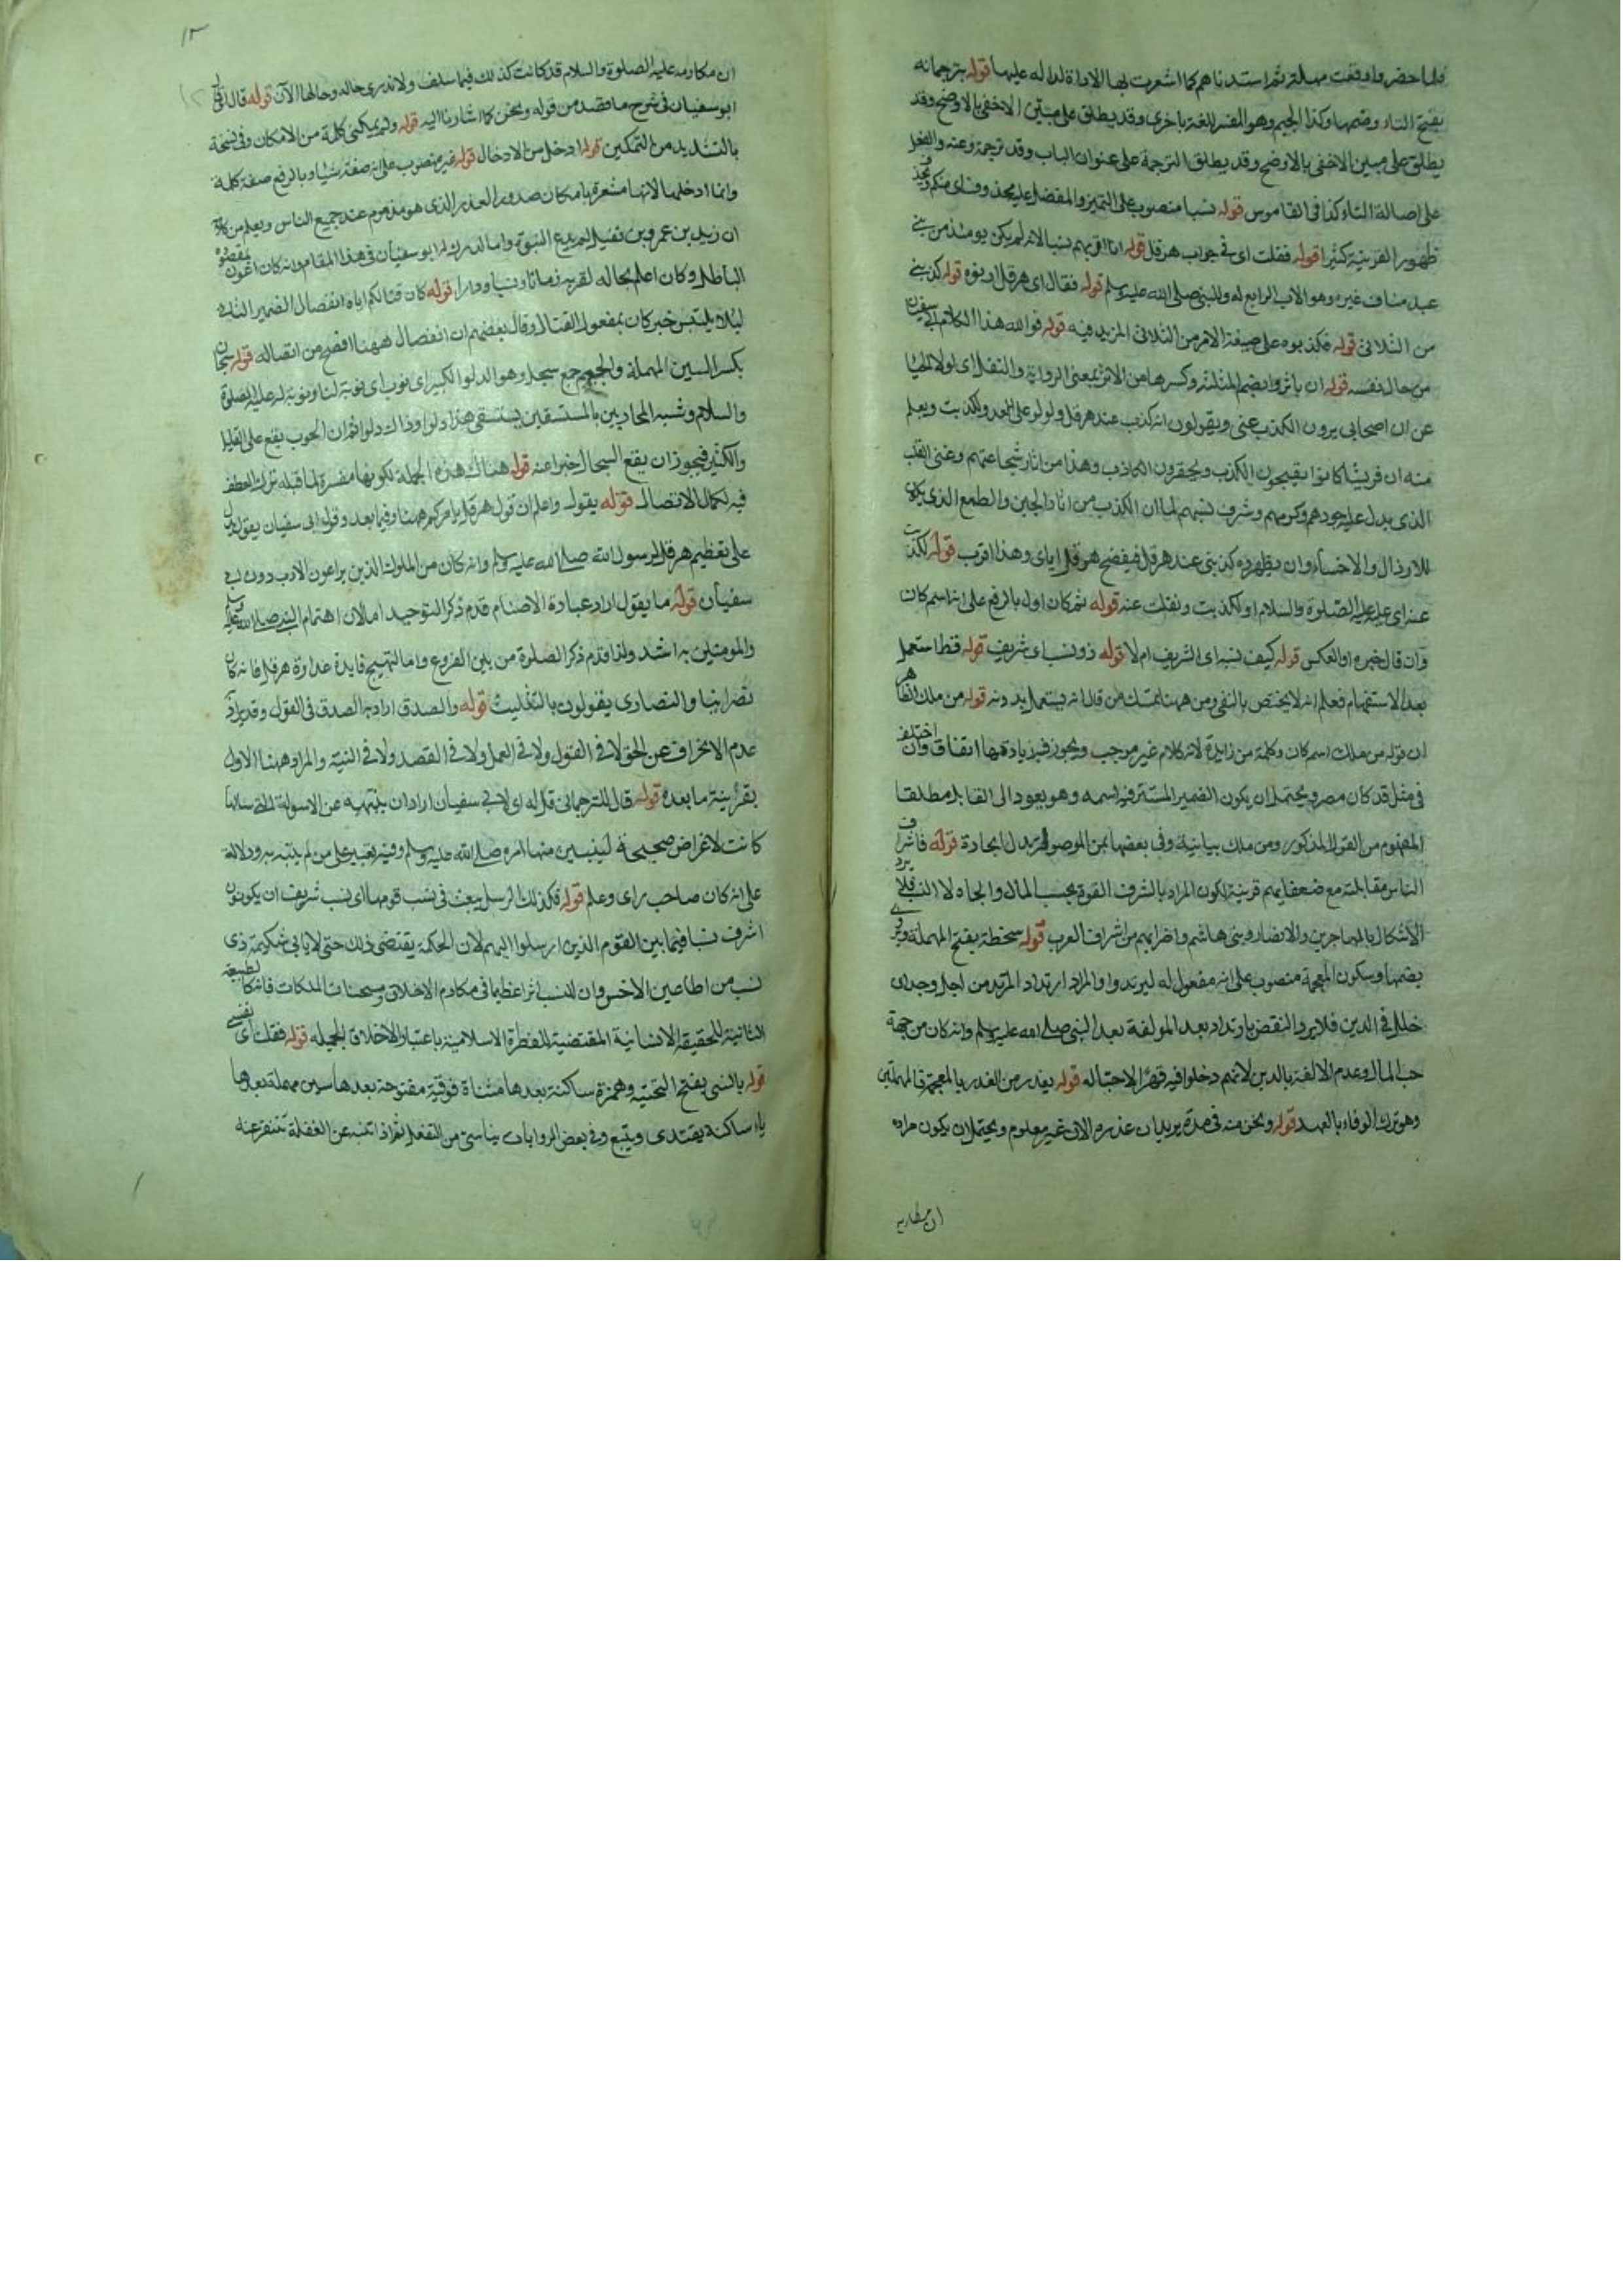 فلما حضروا وقعت مهلة ثم استدناهم كما اشعرت بها الاداة الدالة عليها قوله بترجمانه
بفتح التاء وضمها وكذا الجيم وهو المفسر للغة باخرى وقد يطلق على مبين الاخفى بالاوضح وقد
يطلق على مبين الاخفى بالاوضح وقد يطلق الترجمة على عنوان الباب وقد ترجمه وعنه والفعل
على اصالة التاء كذا فى القاموس قوله نسبا منصوب على التميز والمفضل عليه محذوف اى منكم
ظهور القرينة كثيرا قوله فقلت اى فى جواب هرقل قوله انا اقربهم نسبا لانه لم يكن يومئذ من بنى
عبد مناف غيره وهو الاب الرابع له وللنبى صلى الله عليه وسلم قوله فقال اى هرقل ادنوه قوله كذبنى
من الثلاثى قوله فكذبوه على صيغة الامر من الثلاثى المزيد فيه قوله فوالله هذا الكلام ابى سفيان
من حال نفسه قوله ان ياثروا بضم المثلثة وكسرها من الاثر بمعنى الرواية والنقل اى لولا الحيا
عن ان اصحابى يرون الكذب عنى ويقولون انه كذب عند هرقل ولو لو على العدو لكذبت ويعلم
منه ان قريشا كانوا يقبحون الكذب ويحقرون الكاذب وهذا من اثار شجاعتهم وغنى القلب
الذى يدل عليه جودهم وكرمهم وشرف نسبهم لما ان الكذب من اثار الجبن والطمع الذى يكون
للارذال والاخساء وان يظهروه كذبنى عند هرقل فيفضح هرقل اياى وهذا اقرب قوله لكذبت
عنه اى عليه عليه الصلوة والسلام او لكذبت ونقلت عنه قوله ثم كان اول بالرفع على انه اسم كان
وان قال خبره او العكس قوله كيف نسبه اى الشريف ام لا قوله ذو نسب اى شريف قوله قط استعمل
بعد الاستفهام فعلم انه لا يختص بالنفى ومن ههنا تمسك من قال انه يستعمل بدونه قوله من ملك الظاهر
ان قوله من ملك اسم كان وكلمة من زايدة لانه كلام غير موجب ويجوز فيه زيادتها اتفاقا وان اختلف
فى مثل قد كان من مطر ويحتمل ان يكون الضمير المستتر فيه اسمه وهو يعود الى القايل مطلقا
المفهوم من القول المذكور ومن ملك بيانية وفى بعضها بمن الموصولة بدل الجارة قوله فاشراف
الناس مقابلته مع ضعفايهم قرينة لكون المراد بالشرف القوة بحسب المال والجاه لا النسب فلا يرد
الاشكال بالمهاجرين والانصار وبنى هاشم واضرابهم من اشراف العرب قوله سخطة بفتح المهملة ويروى
بضمها وسكون المعجمة منصوب على انه مفعول له ليرتدوا والمراد ارتداد المرتد من اجل وجدان
خلل فى الدين فلا يرد النقض بارتداد بعد المولفة بعد النبى صلى الله عليه وسلم وانه كان من جهة
حب المال وعدم الالفة بالدين لانهم دخلوا فيه قهرا لا حبا له قوله يغدر من الغدر بالمعجمة فالمهملتين
وهو ترك الوفاء بالعهد قوله ونحن منه فى مدة يريد ان غدره الان غير معلوم ويحتمل ان يكون مراده
ان مكارمه عليه الصلوة والسلام قد كانت كذلك فيما سلف ولا ندرى حاله وحالها الآن قوله قال اى
ابو سفيان فى شرح ما قصد من قوله ونحن كما اشارنا اليه قوله ولم يمكنى كلمة من الامكان وفى نسخة
بالتشديد من التمكين قوله ادخل من الادخال قوله غير منصوب على انه صفة شيئا وبالرفع صفة كلمة
وانما ادخلها لانها مشعرة بامكان صدور الغدر الذى هو مذموم عند جميع الناس ويعلم من
ان زيد بن عمرو بن نفيل لم يدع النبوة واما لم ابو سفيان فى هذا المقام وانه كان
الباطل وكان اعلم بحاله لقربه زمانا ونسبا ودارا قوله كان قتالكم اياه انفصال الضمير
ليلا يلتبس خبر كان بمفعول القتال وقال بعضهم ان انفصال ههنا افصح من اتصاله قوله سجال
بكسر السين المهملة والجيم جمع سجل وهو الدلو الكبير اى نوب اى نوبة لنا ونوبة له عليه الصلوة
والسلام وشبه المحاربين بالمستقين يستقى هذا دلوا وذاك دلوا ثم ان الحرب يقع على القليل
والكثير فيجوز ان يقع السجال خبرا عنه قوله هناك هذه الجملة لكونها مفسرة لما قبله ترك العطف
فيه لكمال الاتصال قوله يقول واعلم ان قول هرقل يامركم ههنا وفيما بعد وقول ابى سفيان يقول يدل
على تعظيم هرقل لرسول الله صلى الله عليه وسلم وانه كان من الملوك الذين يراعون الادب دون ابى
سفيان قوله ما يقول اراد عبادة الاصنام قدم ذكر التوحيد اما لان اهتمام النبى صلى الله عليه وسلم
والمومنين به اشد ولذا قدم ذكر الصلوة من بين الفروع واما لتهييج فايدة عداوة هرقل فانه كان
نصرانيا والنصارى يقولون بالتثليث قوله والصدق اراد به الصدق فى القول وقد يراد
عدم الانحراف عن الحق لا فى القول ولا فى العمل ولا فى القصد ولا فى النية والمراد ههنا الاول
بقرينة ما بعده قوله قال للترجمان قل له اى لابى سفيان اراد ان ينبهه عن الاسولة التى سالها
كانت لاغراض صحيحة ليتبين منها امره صلى الله عليه وسلم وفيه تعبير على من لم يتنبه به ودلالة
على انه كان صاحب راى وعلم قوله فكذلك الرسل يبعث فى نسب قومها اى نسب شريف ان يكونون
اشرف نسبا فيما بين القوم الذين ارسلوا اليهم لان الحكمة يقتضى ذلك حتى لا يابى شكيمة ذى
نسب من اطاعين الاخس وان للنسب اثرا عظيما فى مكارم الاخلاق ومستحسنات الملكات فانه كالطبيعة
الثانية للحقيقة الانسانية المقتضية للفطرة الاسلامية باعتبار الاخلاق الجميلة قوله فقلت اى نفسى
قوله ياتسى بفتح التحتية وهمزة ساكنة بعدها مثناة فوقية مفتوحة بعدها سين مهملة بعدها
ياء ساكنة يقتدى ويتبع وفى بعض الروايات يتاسى من التفعل